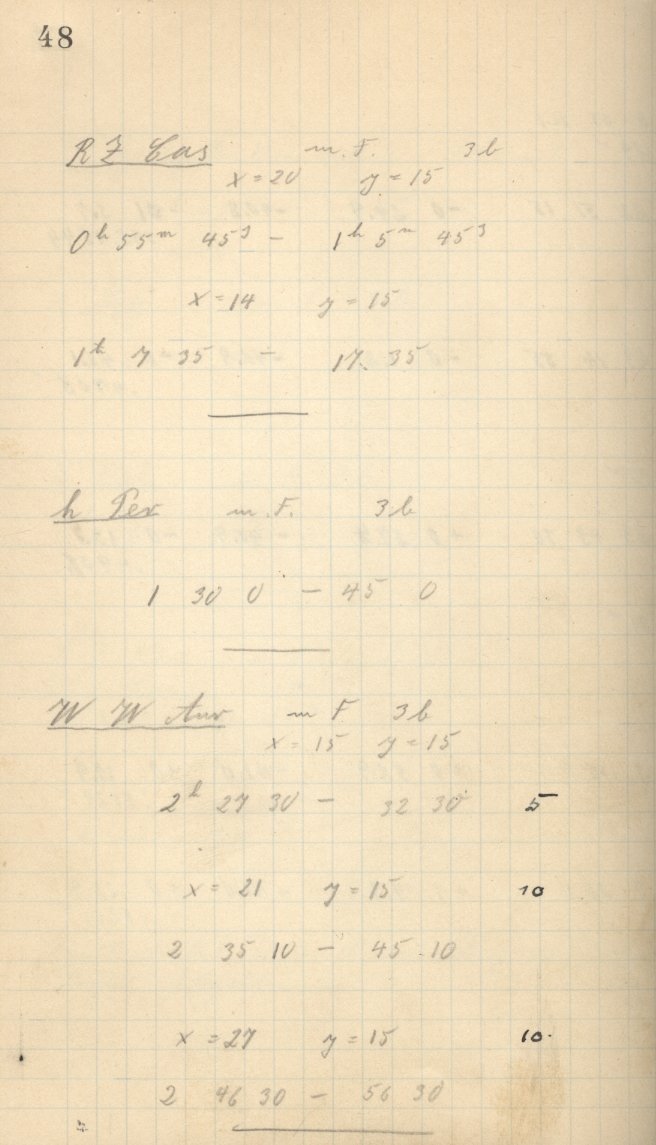 48
RZ Cas m. F. 3b
x=20 y=15
0h 55m 45s - 1h 5m 45s
x=14 y=15
1h 7 35 - 17. 35
h Per m. F. 3b
1 30 0 - 45 0
W W Aur m F 3b
x=15 y=15
2h 27 30 - 32 30 5
x= 21 y=15 10
2 35 10 - 45 10
x=27 y=15 10
2 46 30 - 56 30